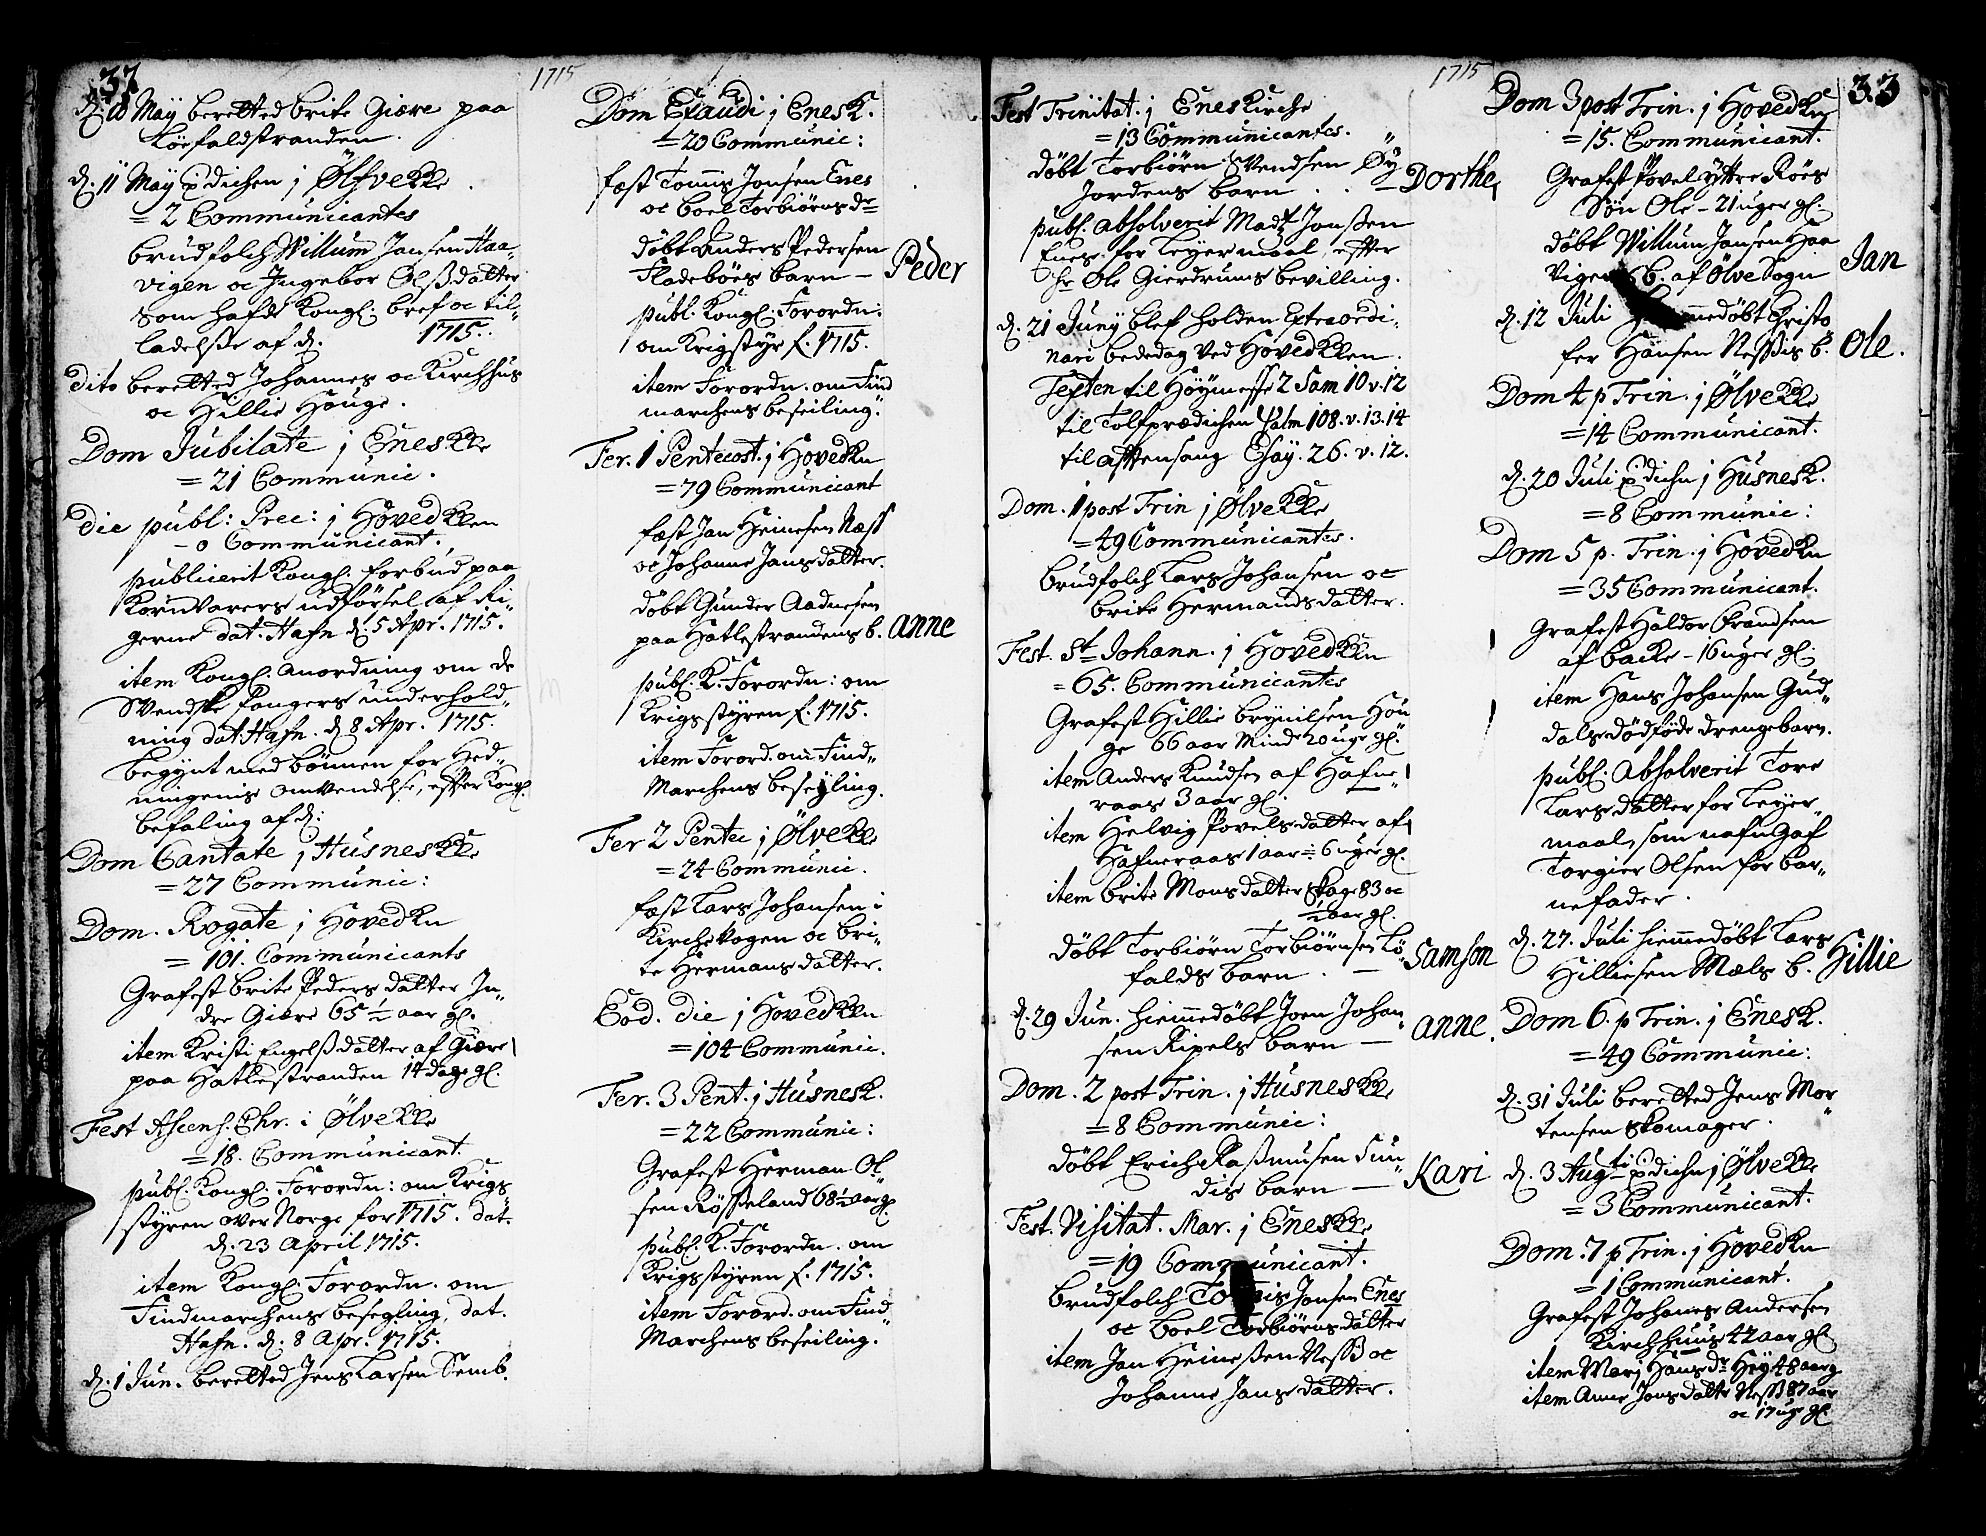 37
1715
d. 10 Maÿ berettet brite Giære paa
Løefaldstranden.
d. 11 Maÿ prædichen j Ølfvekke
= 2 Communicantes
brudfolch Willum Jansen Haa-
vigen oc Jngebor Olßdatter
som hafde Kongl. bref oc til-
ladelsse af d. 1715.
dito berettet Johannes oc Kirchhus
oc Hillie Houge.
Dom Jubilate j Eneskke
= 21 Communic.
die publ: Prec: j Hovedkken
- 0 Communicant.
publicerit Kongl. forbud paa
Kornvarers udførsel af Ri-
gerne dat. Hafn d. 5 Apr. 1715.
item Kongl. anordning om de
Svendske fangers underhold-
ning dat. Hafn. d 8 Apr. 1715.
begynt med bønnen for Hed-
ningenis omvendelse, efter Kongl.
befaling af d:
Dom Cantate j Husneskke
= 27 Communic:
Dom. Rogate j Hovedkn
= 101. Communicants
Grafest brite Peders datter Jn-
dre Giære 65 ½ aar gl.
item Kristi Engelßdatter af Giære
paa Hatlestranden 14 dage gl.
Fest Ascens. Chr. i Ølvekke
= 18. Communicant.
publ. Kongl. Forordn: om Krigs
styren over Norge for 1715. dat.
d. 23 April 1715.
item Kongl. Forordn. om
Findmarchens besegling, dat.
Hafn. d. 8 Apr. 1715.
d. 1 Jun. berettet Jens Larsen Semb.
Dom Exaudi j Enesk.
= 20 Communic:
fæst Tomis Jonsen Enes
oc boel Torbiørns dr
døbt Anders Pedersen
Fladebøes barn - Peder
publ. Kongl. Forordn:
om Krigstyr f. 1715.
item Forordn. om Find
marchens beseiling.
Fer. 1 Pentecost. j Hovedkn
= 79 Communicant
fæst Jan Heinesen Næss
oc Johanne Jans datter.
døbt Gunder Aadnesen
paa Hatlestrandens b. Anne
publ. K. Forordn: om
Krigsstyren f. 1715.
item Forord. om Find-
Marchens beseyling.
Fer 2 Pentec j Ølvekke
= 24 Communic.
fæst Lars Johansen i
Kirchskogen oc bri-
te Hermans datter.
Eod. die j Hovedkn
= 104 Communic.
Fer. 3 Pent. j Husnesk.
= 22 Communic:
Grafest Herman Ol-
sen Røsseland 68 ½ aar gl
publ. K. Forordn. om
Krigsstyren f. 1715.
item Forord. om Find-
Marchens beseiling.
1715
33
Fest Trinitat. j Enes kirche
= 13 Communicantes.
døbt Torbiørn Svendsen Øy
Jordens barn . . - Dorthe
publ. absolverit Madtz Jonßen
Enes. for Leyermaal, efter
hr Ole Gierdrums bevilling.
d. 21 Junÿ blef holden Extraordi-
nari bededag ved Hovedkken.
Texten til Høymesse 2 Sam 10 v. 12
til Tolfprædichen Psalm 108. v. 13. 14
til aftensang Esay. 26. v. 12.
Dom. 1 post Trin j Ølvekke
= 49 Communicantes.
brudfolch Lars Johansen oc
brite Hermands datter.
Fest. St Johann. j Hovedkkn
= 65. Communicantes
Grafest Hillie brynilsen Hou
ge 66 aar Mind 20 uge gl.
item Anders Knudsen af Hafne
raas 3 aar gl.
item Helvig Povels datter af
Hafneraas 1 aar ÷ 6 uger gl.
item brite Mons datter Skage 83 oc
½ aar gl.
døbt Torbiørn Torbiørnsen Lø-
falds barn . - Samson
d. 29 Jun. hiemmedøbt Joen Johan-
sen Ripels barn - Anne.
Dom. 2 post Trin. j Husneskke
= 8 Communic:
døbt Erich Raßmusen Sun-
dis barn - Kari
Fest. Visitat. Mar. j Eneskke
= 19 Communicant.
brudfolch Tomis Jonsen Enes
oc boel Torbiørns datter
item Jan Heineßen Neßs oc
Johanne Jans datter.
Dom 3 post Trin. j Hovedkn
= 15. Communicant.
Grafest Povel Yttre Røes
Søn Ole - 21 uger gl.
døbt Willum Jansen Haa
vigens b. af Ølve Sogn Jan
d. 12 Juli hiemmedøbt Christo
fer Hansen Neßsis b. Ole.
Dom 4 p Trin. j Ølvekke
= 14 Communicant.
d. 20 Juli prædichn j Husnesk.
= 8 Communic:
Dom 5 p. Trin. j Hovedkn
= 35 Communicant.
Grafest Haldor Frandsen
af backe - 16 uger gl.
item Hans Johansen Gud-
dals dødføde drengebarn.
publ. absolverit Tore
Lars datter for Leyer-
maal, som nafngaf
Torgier Olsen for bar-
nefader.
d. 27. Juli hiemmedøbt Lars
Hilliesen Mæls b. Hillie
Dom 6. p Trin. j Enesk.
= 49 Communic:
d. 31 Juli berettet Jens Mor-
tensen Skomager.
d. 3 Augusti prædichn j Ølvekke
= 3 Communicant.
Dom. 7 p Trin. j Hovedkn
= 1 Communicant.
Grafest Johanes Andersen
Kirchhuus 42 aar gl
item Marj Hans dr Høy 48 aar g
item Anne Jons datter Neßs 87 aar
oc 17 uge gl